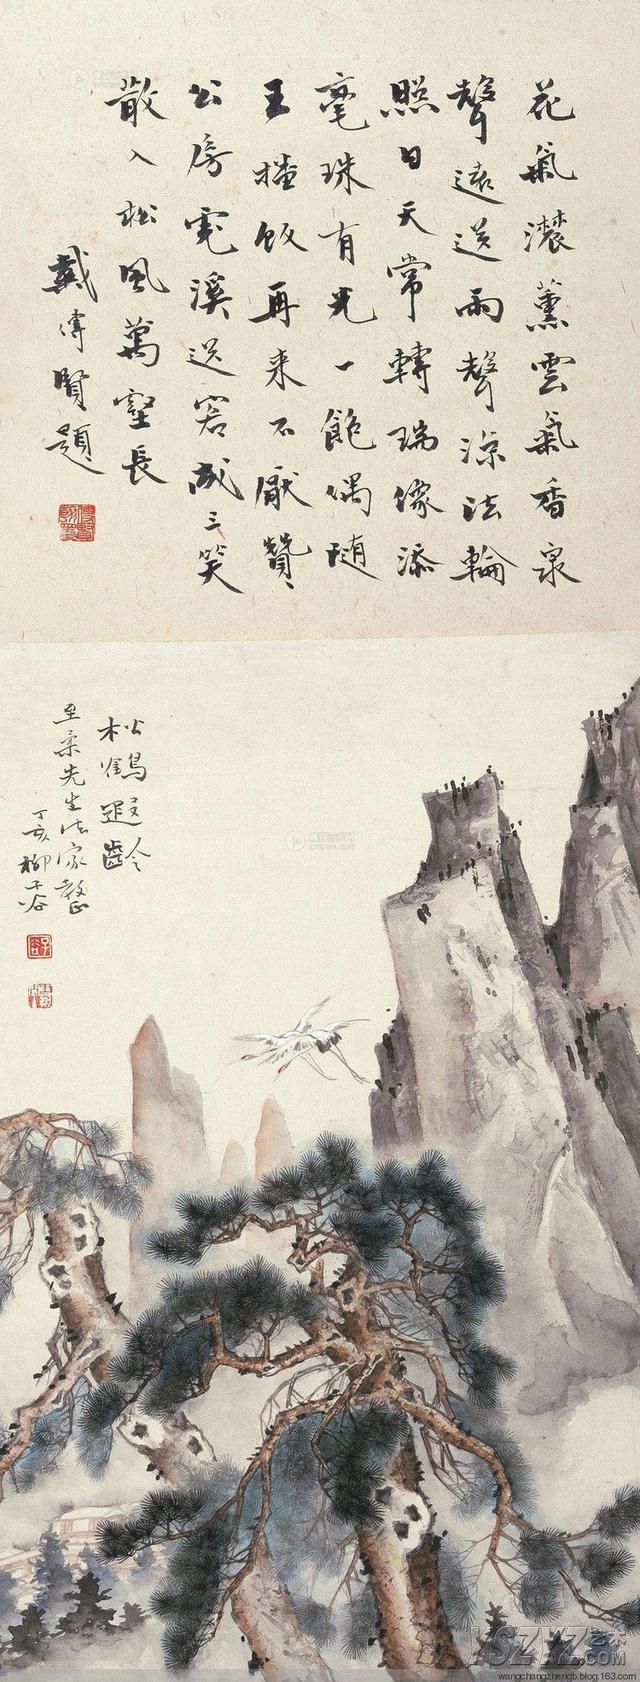 花氣濃薰雲氣香泉
聲遠送雨聲涼法輪
照日天常轉瑞像添
毫珠有光一飽偶隨
王播飯再来不厭贊
公房虎溪送客成三笑
散入松風萬壑長
戴傳賢題
松鶴遐齡
至柔先生法家教正
丁亥柳子谷
子谷
艺术
.COM
wangchangzhengb.blog.163.com